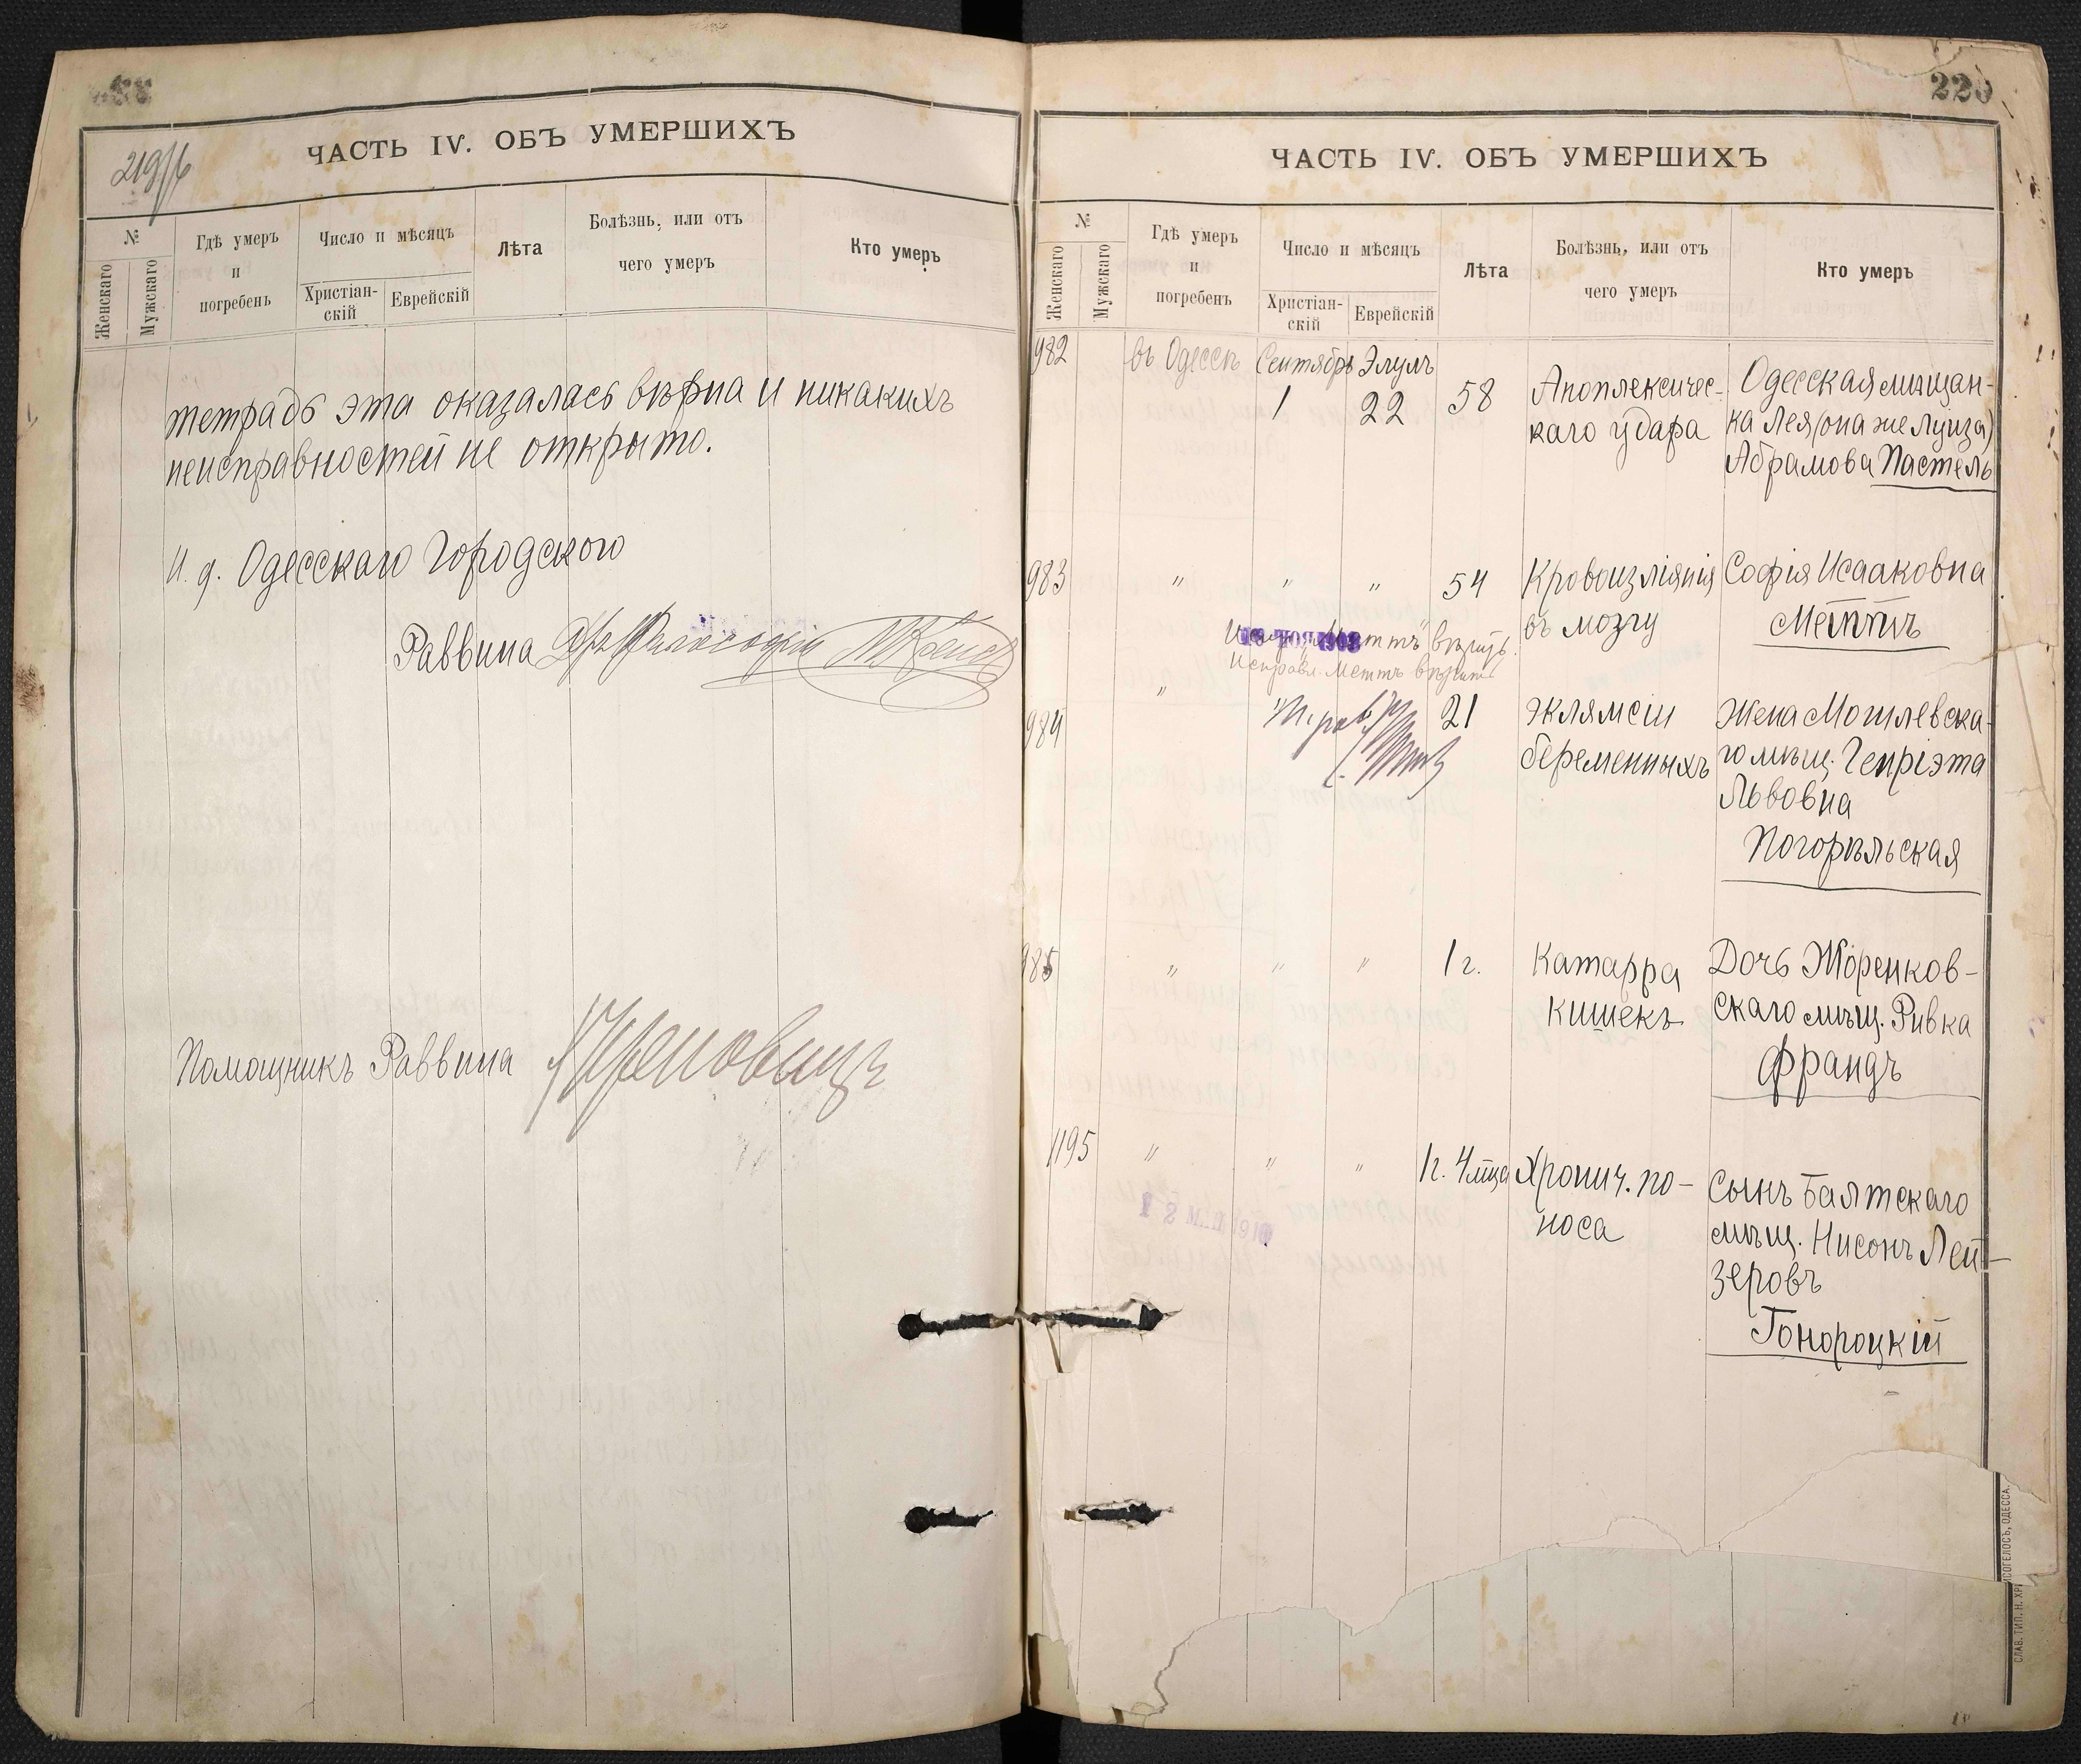 219/б
ЧАСТЬ IV. ОБЪ УМЕРШИХЪ
№
Женскаго
Мужскаго
Гдѣ умеръ
и
погребенъ
Число и мѣсяцъ
Христіан-
скій
Еврейскій
Лѣта
Болѣзнь, или отъ
чего умеръ
Кто умеръ
тетрадь эта оказалась вѣрна и никакихъ
неисправностей не открыто.
И. д. Одесскаго Городского
Раввина
Помощникъ Раввина
220
ЧАСТЬ IV. ОБЪ УМЕРШИХЪ
№
Женскаго
Мужскаго
Гдѣ умеръ
и
погребенъ
Число и мѣсяцъ
Христіан-
скій
Еврейскій
Лѣта
Болѣзнь, или отъ
чего умеръ
Кто умеръ
982
въ Одессѣ
Сентябрь
1
Элулъ
22
58
Апоплексичес-
каго удара
Одесская мѣщан-
ка Лея (она же Луиза)
Абрамова Пастель
983
"
"
"
54
Кровоизліянія
въ мозгу
Софія Исааковна
Меттъ
Исправл. Меттъ вѣрить
984
"
21
Эклямсіи
беременныхъ
Жена Могилевска-
го мѣщ. Генріэта
Львовна
Погорѣльская
985
"
"
"
1 г.
Катарра
кишекъ
Дочь Жоренков-
скаго мѣщ. Ривка
Франдъ
1195
"
"
"
1 г. 4 мца
Хронич. по-
носа
Сынъ Балтскаго
мѣщ. Нисонъ Лей-
зеровъ
Гонороцкій
12 МАЙ 1910
СЛАВ. ТИП. Н. ХРИСОГЕЛОСЪ, ОДЕССА.